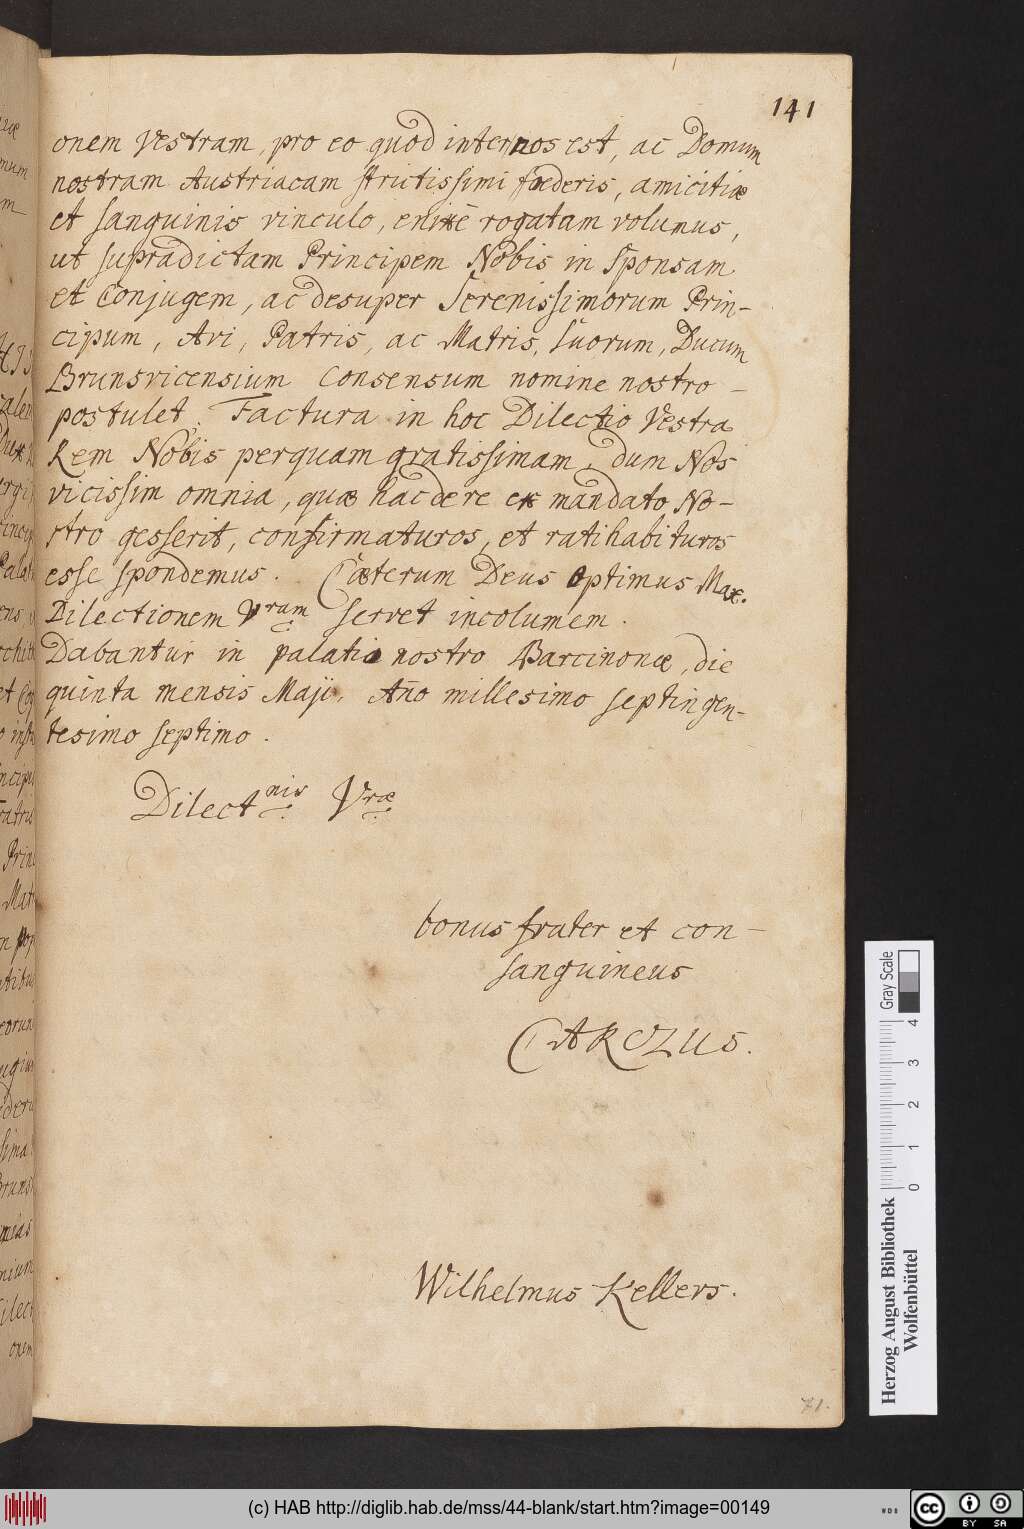 141
onem Vestram, pro eo quod inter nos est, ac Domum
nostram Austriacam strictissimi fœderis, amicitiæ
et sanguinis vinculo, enixè rogatam volumus,
ut supradictam Principem Nobis in Sponsam
et Conjugem, ac desuper Serenissimorum Prin-
cipum, Avi, Patris, ac Matris, Suorum, Ducum
Brunsvicensium Consensum nomine nostro -
postulet. Factura in hoc Dilectio Vestra
Rem Nobis perquam gratissimam, dum Nos
vicissim omnia, quæ hac de re ex mandato No-
stro gesserit, confirmaturos, et ratihabituros
esse spondemus. Cæterum Deus Optimus Max.
Dilectionem Vram servet incolumem.
Dabantur in palatio nostro Barcinonæ, die
quinta mensis Maji, Año millesimo septingen-
tesimo septimo.
Dilectnis Vræ
bonus frater et con-
sanguineus
CAROLUS.
Wilhelmus Kellers.
71.
Herzog August Bibliothek
Wolfenbüttel
0 1 2 3 4
Gray Scale
(c) HAB http://diglib.hab.de/mss/44-blank/start.htm?image=00149
WDB
cc BY SA